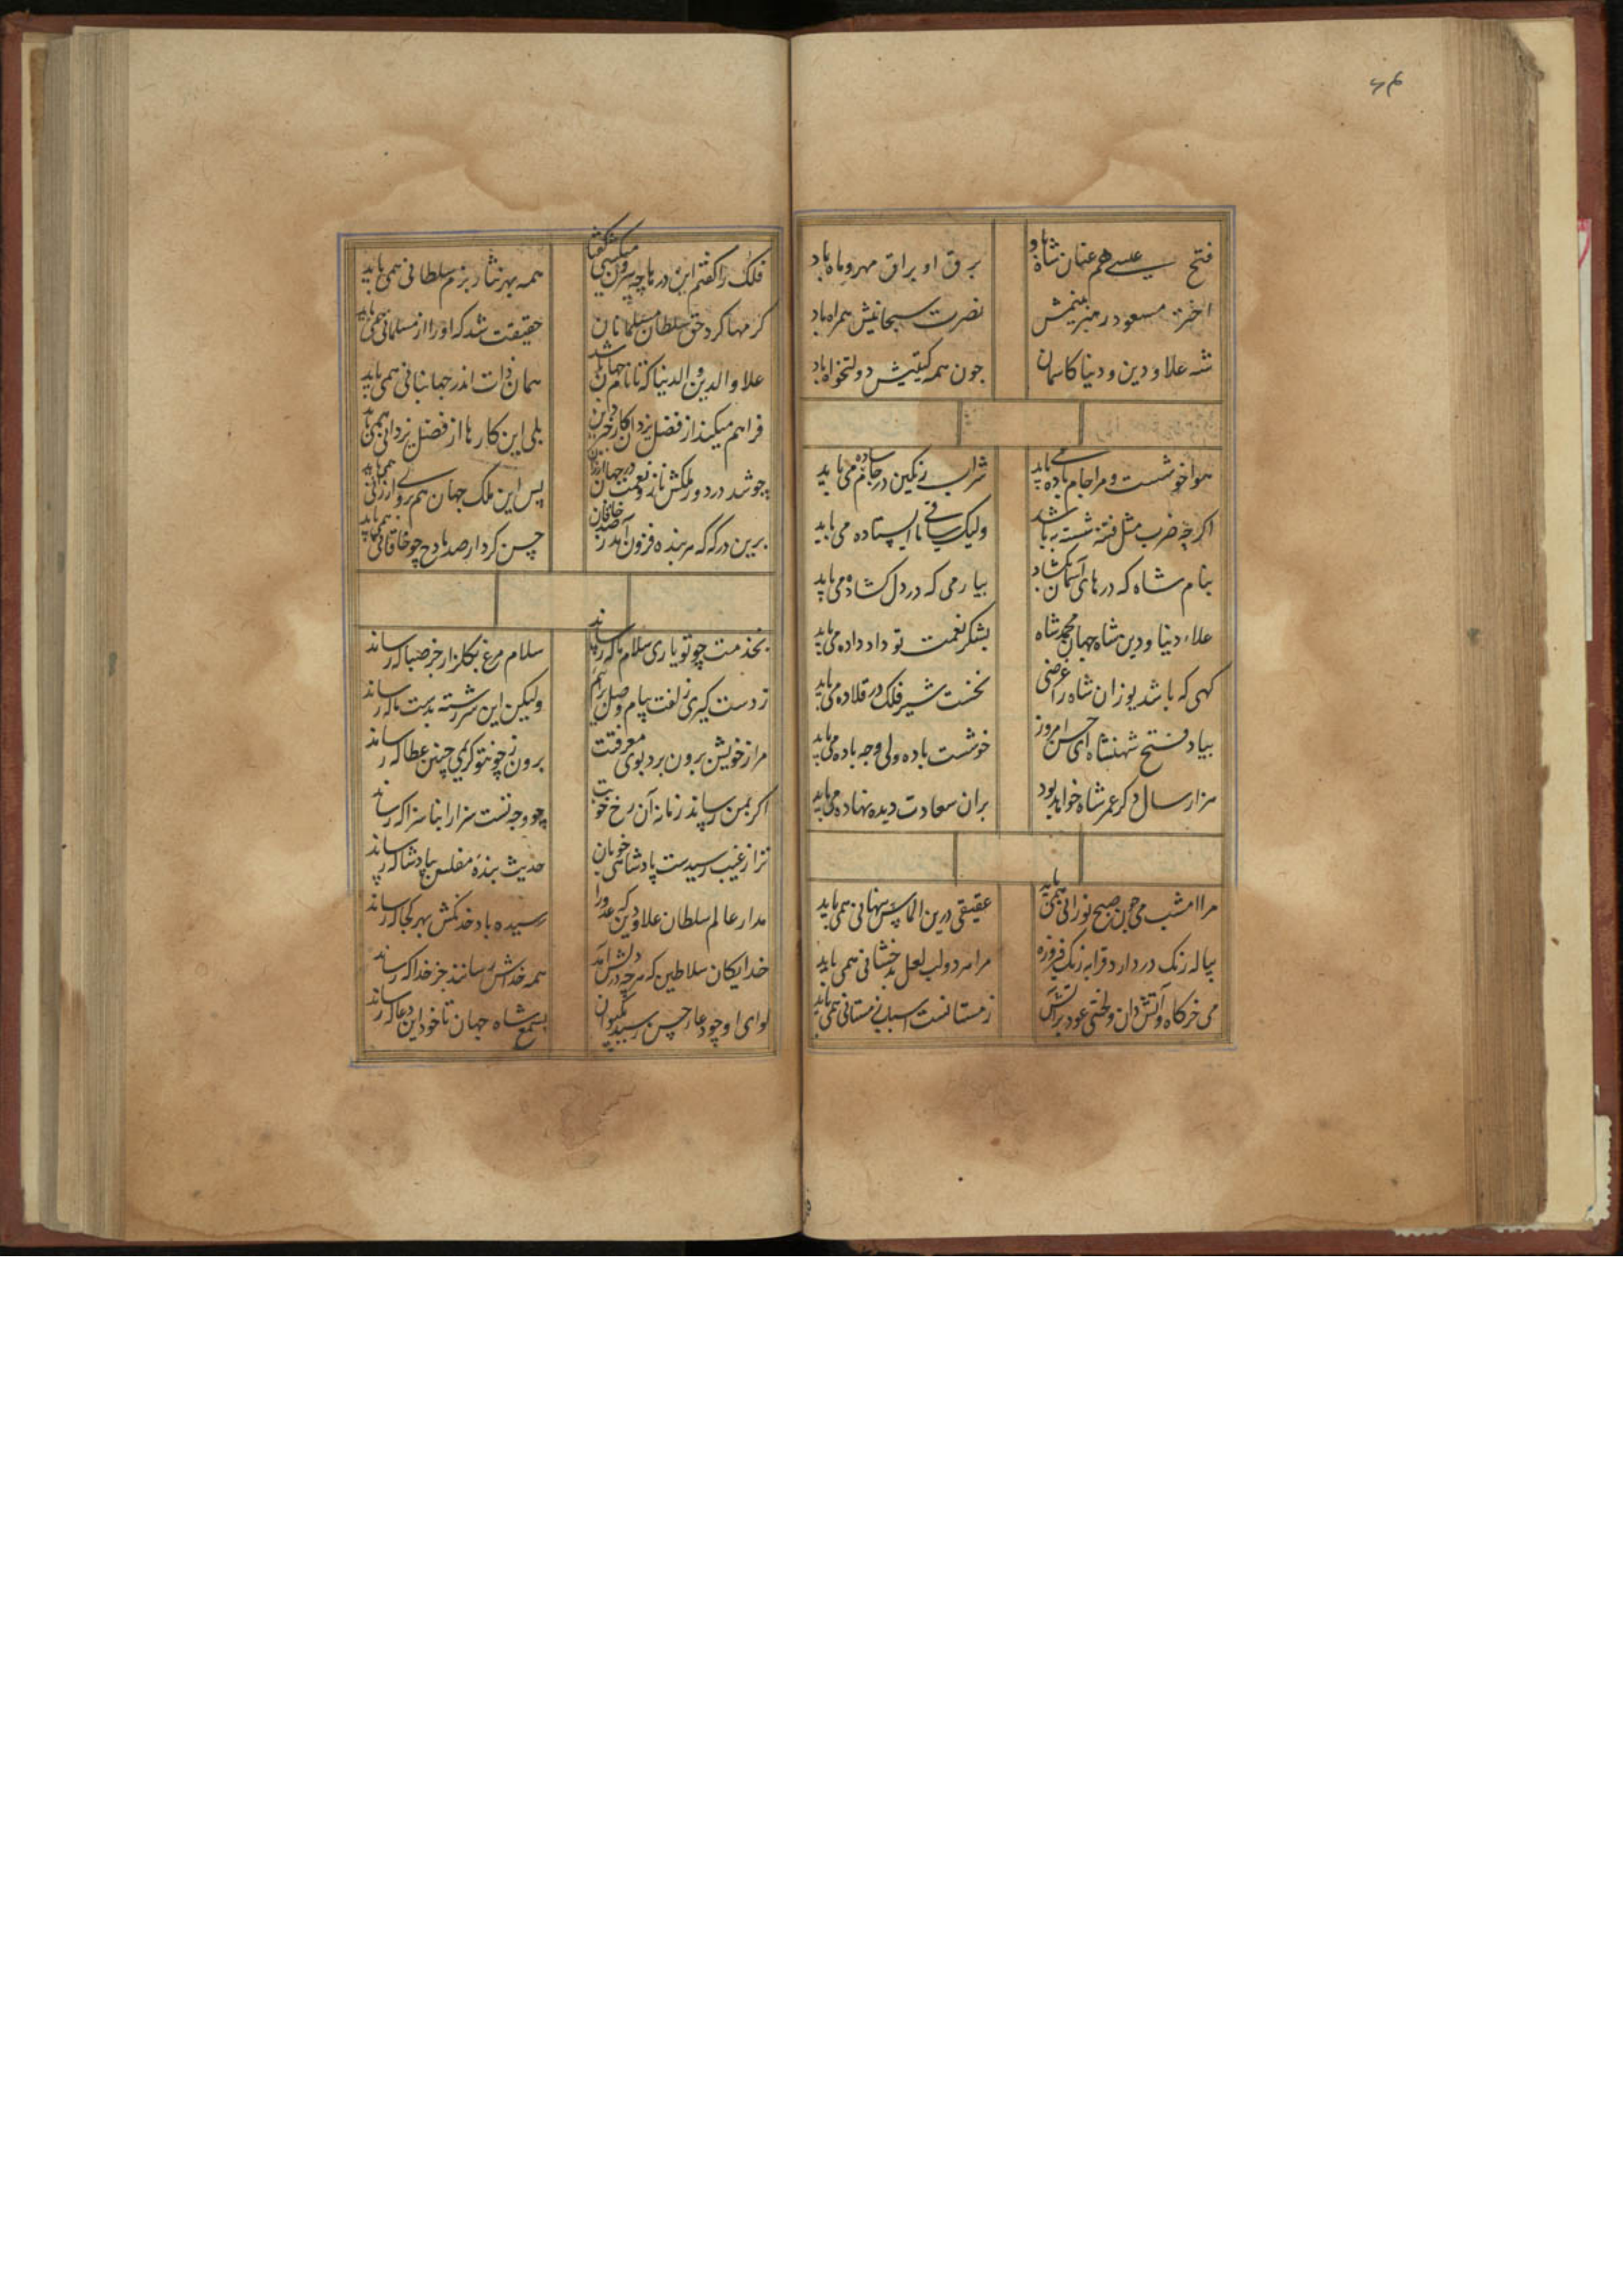 ۶۴
فتح عیسی هم عنان شاه باد
برق او براق مهر و ماه باد
اختر مسعود رهبر بینمش
نصرت سبحانیش همراه باد
شه علاو دین و دنیا کاسمان
چون همه گیتیش دولتخواه باد
هوا خوشست و مرا جام باده می باید
شراب رنگین در جام ساده می باید
اگرچه ضرب مثل فتنه نشسته به باشد
ولیک ساقی ما ایستاده می باید
بنام شاه که درهای آسمان بکشاد
بیار می که در دل کشاده می باید
علاء دنیا و دین شاه جهان محمد شاه
بشکر نعمت تو داد داده می باید
کهی که باشد یوزان شاه را عرضی
نخست شیر فلک در قلاده می باید
بیاد فتح شهنشاه ای حسن امروز
خوشست باده ولی وجه باده می باید
هزار سال دگر عمر شاه خواهد بود
بران سعادت دیده نهاده می باید
مرا امشب می چون صبح نورانی همی باید
عقیقی درین الماس پنهانی همی باید
پیاله رنگ در دارد قرابه رنگ فیروزه
مرا هر دو لب لعل بدخشانی همی باید
می خرکاه و آتش دان و لختی عود بر آتش
زمستانست اسباب زمستانی همی باید
فلک را گفتم این درها چه بیرون میکشی گفتا
همه بهر نثار بزم سلطانی همی باید
کرمها کرد حق سلطان مسلمانان
حقیقت شد که او را از مسلمانی همی باید
علاو الدین و الدنیا که تا نام جهان باشد
همان ذات اندر جهانبانی همی باید
فراهم میکند از فضل یزدان کار دین
بلی این کارها از فضل یزدانی همی باید
چو شد در دور ملکش ناز و نعمت در جهان ارزان
پس این ملک جهان هم بروی ارزانی همی باید
برین درگه که هر بنده فزون آمد ز صد خاقان
حسن کردار صد مادح چو خاقانی همی باید
بخدمت چو تو یاری سلام ما که رساند
سلام مرغ بگلزار جز صبا که رساند
ز دست گیری زلفت پیام وصل
ولیکن این سر رشته بدست ما که رساند
مرا ز خویش برون برد بوی معرفتت
برون ز چون تو کریمی چنین عطا که رساند
اگر بمن رساند زمانه آن رخ خوبت
چو وجه تست سزا را بناسزا که رساند
ترا ز غیب رسیدست پادشاهی خوبان
حدیث بنده مفلس بپادشا که رساند
مدار عالم سلطان علاو دین که عدو را
رسیده باد خدنگش بهر کجا که رساند
خدایگان سلاطین که هر چه در دلش آمد
همه خداش رسانند جز خدا که رساند
لوای او چو دعای حسن رسید بکیوان
بسمع شاه جهان تا خود این دعا که رساند